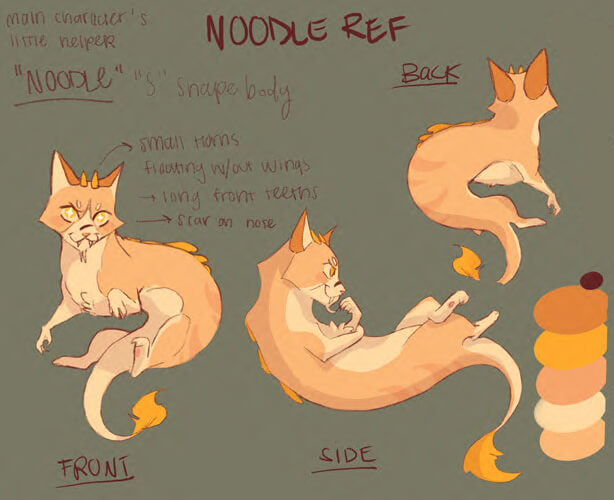 main character's
little helper
NOODLE REF
"NOODLE" "S" shape body
BACK
→ small horns
floating w/out wings
→ long front teeths
→ scar on nose
FRONT
SIDE